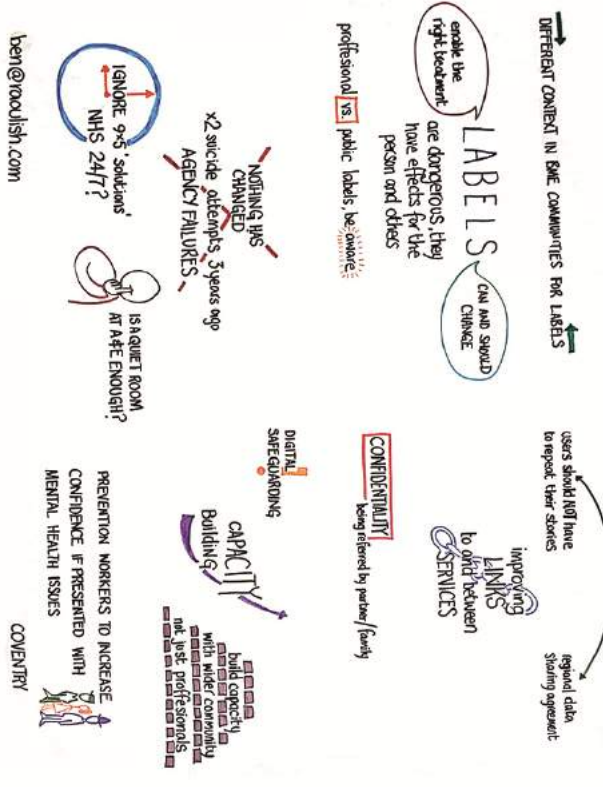 DIFFERENT CONTEXT IN BME COMMUNITIES FOR LABELS
enable the
right treatment
LABELS
CAN AND SHOULD
CHANGE
are dangerous, they
have effects for the
person and others
proffesional vs. public labels, be aware
NOTHING HAS
CHANGED
x2 suicide attempts, 3 years ago
AGENCY FAILURES
IGNORE 9x5 'solutions'
NHS 24/7?
IS A QUIET ROOM
AT A&E ENOUGH?
ben@raoulish.com
users should NOT have
to repeat their stories
regional data
sharing agreement
improving
LINKS
to and between
SERVICES
CONFIDENTIALITY
being referred by partner/family
DIGITAL
SAFEGUARDING
CAPACITY
Building
build capacity
with wider community
not just proffesionals
PREVENTION WORKERS TO INCREASE
CONFIDENCE IF PRESENTED WITH
MENTAL HEALTH ISSUES
COVENTRY